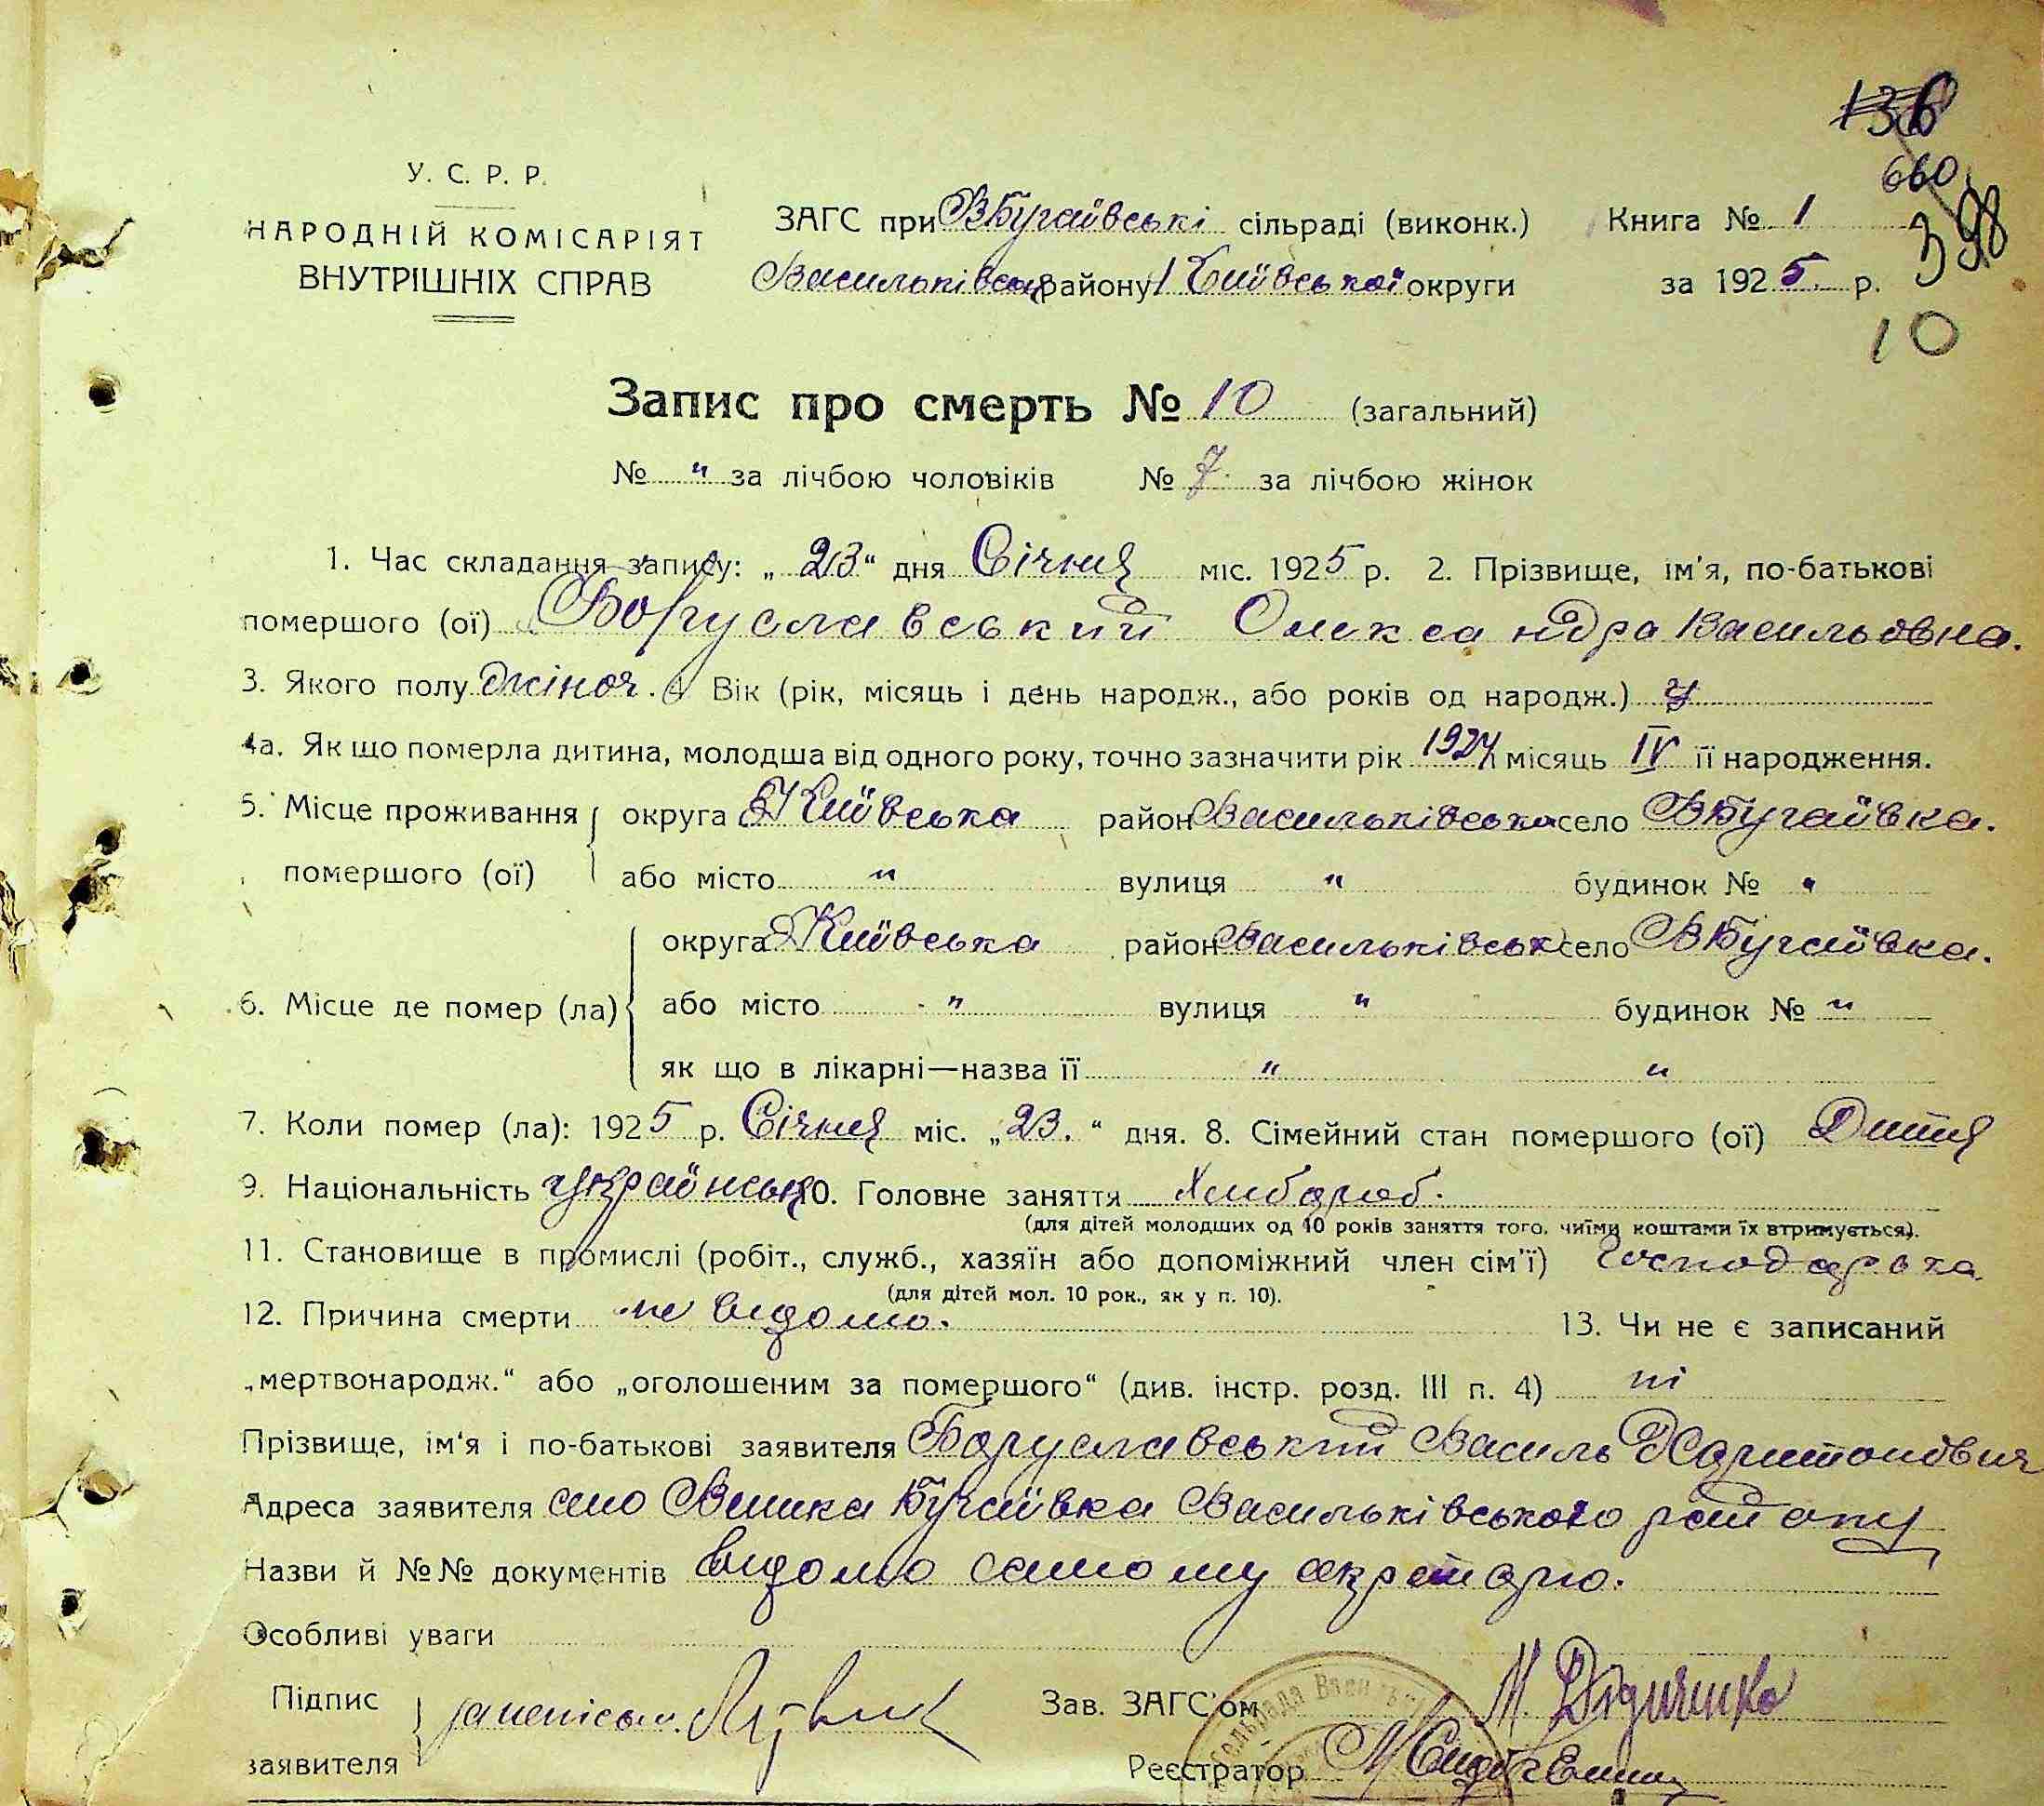 136
660
398
У. С. Р. Р.
НАРОДНІЙ КОМІСАРІЯТ
ВНУТРІШНІХ СПРАВ
ЗАГС при ВБугаївські сільраді (виконк.)
Васильківськ району Київської округи
Книга № 1
за 1925 р.
10
Запис про смерть № 10 (загальний)
№ " за лічбою чоловіків № 7 за лічбою жінок
1. Час складання запису: „23“ дня Січня міс. 1925 р. 2. Прізвище, ім'я, по-батькові
помершого (ої) Боруславський Олександра Васильовна.
3. Якого полу жіноч. 4 Вік (рік, місяць і день народж., або років од народж.)
4а. Як що померла дитина, молодша від одного року, точно зазначити рік 1924 місяць IV її народження.
5. Місце проживання округа Київська район Васильківська село ВБугаївка.
помершого (ої) або місто " вулиця " будинок № "
округа Київська район Васильківськ село ВБугаївка.
6. Місце де помер (ла) або місто " вулиця " будинок № "
як що в лікарні—назва її " "
7. Коли помер (ла): 1925 р. Січня міс. „23.“ дня. 8. Сімейний стан помершого (ої) Дитя
9. Національність українська 10. Головне заняття Хлібороб.
(для дітей молодших од 10 років заняття того, чиїми коштами їх втримується).
11. Становище в промислі (робіт., служб., хазяїн або допоміжний член сім'ї) Господарька
(для дітей мол. 10 рок., як у п. 10).
12. Причина смерти не відомо. 13. Чи не є записаний
„мертвонародж.“ або „оголошеним за помершого“ (див. інстр. розд. III п. 4) ні
Прізвище, ім'я і по-батькові заявителя Боруславський Василь Харитонович
Адреса заявителя село Велика Бугаївка Васильківського району
Назви й №№ документів відомо самому секретарю.
Особливі уваги
Підпис
заявителя
Зав. ЗАГС'ом М Дідиченко
Реєстратор